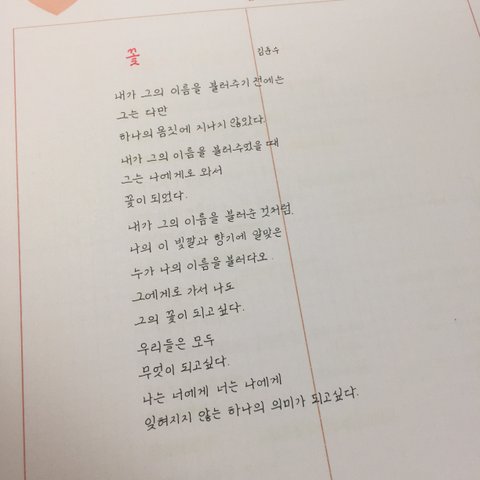 꽃
김춘수
내가 그의 이름을 불러주기 전에는
그는 다만
하나의 몸짓에 지나지 않았다.
내가 그의 이름을 불러주었을 때
그는 나에게로 와서
꽃이 되었다.
내가 그의 이름을 불러준 것처럼
나의 이 빛깔과 향기에 알맞은
누가 나의 이름을 불러다오.
그에게로 가서 나도
그의 꽃이 되고싶다.
우리들은 모두
무엇이 되고싶다.
나는 너에게 너는 나에게
잊혀지지 않는 하나의 의미가 되고싶다.